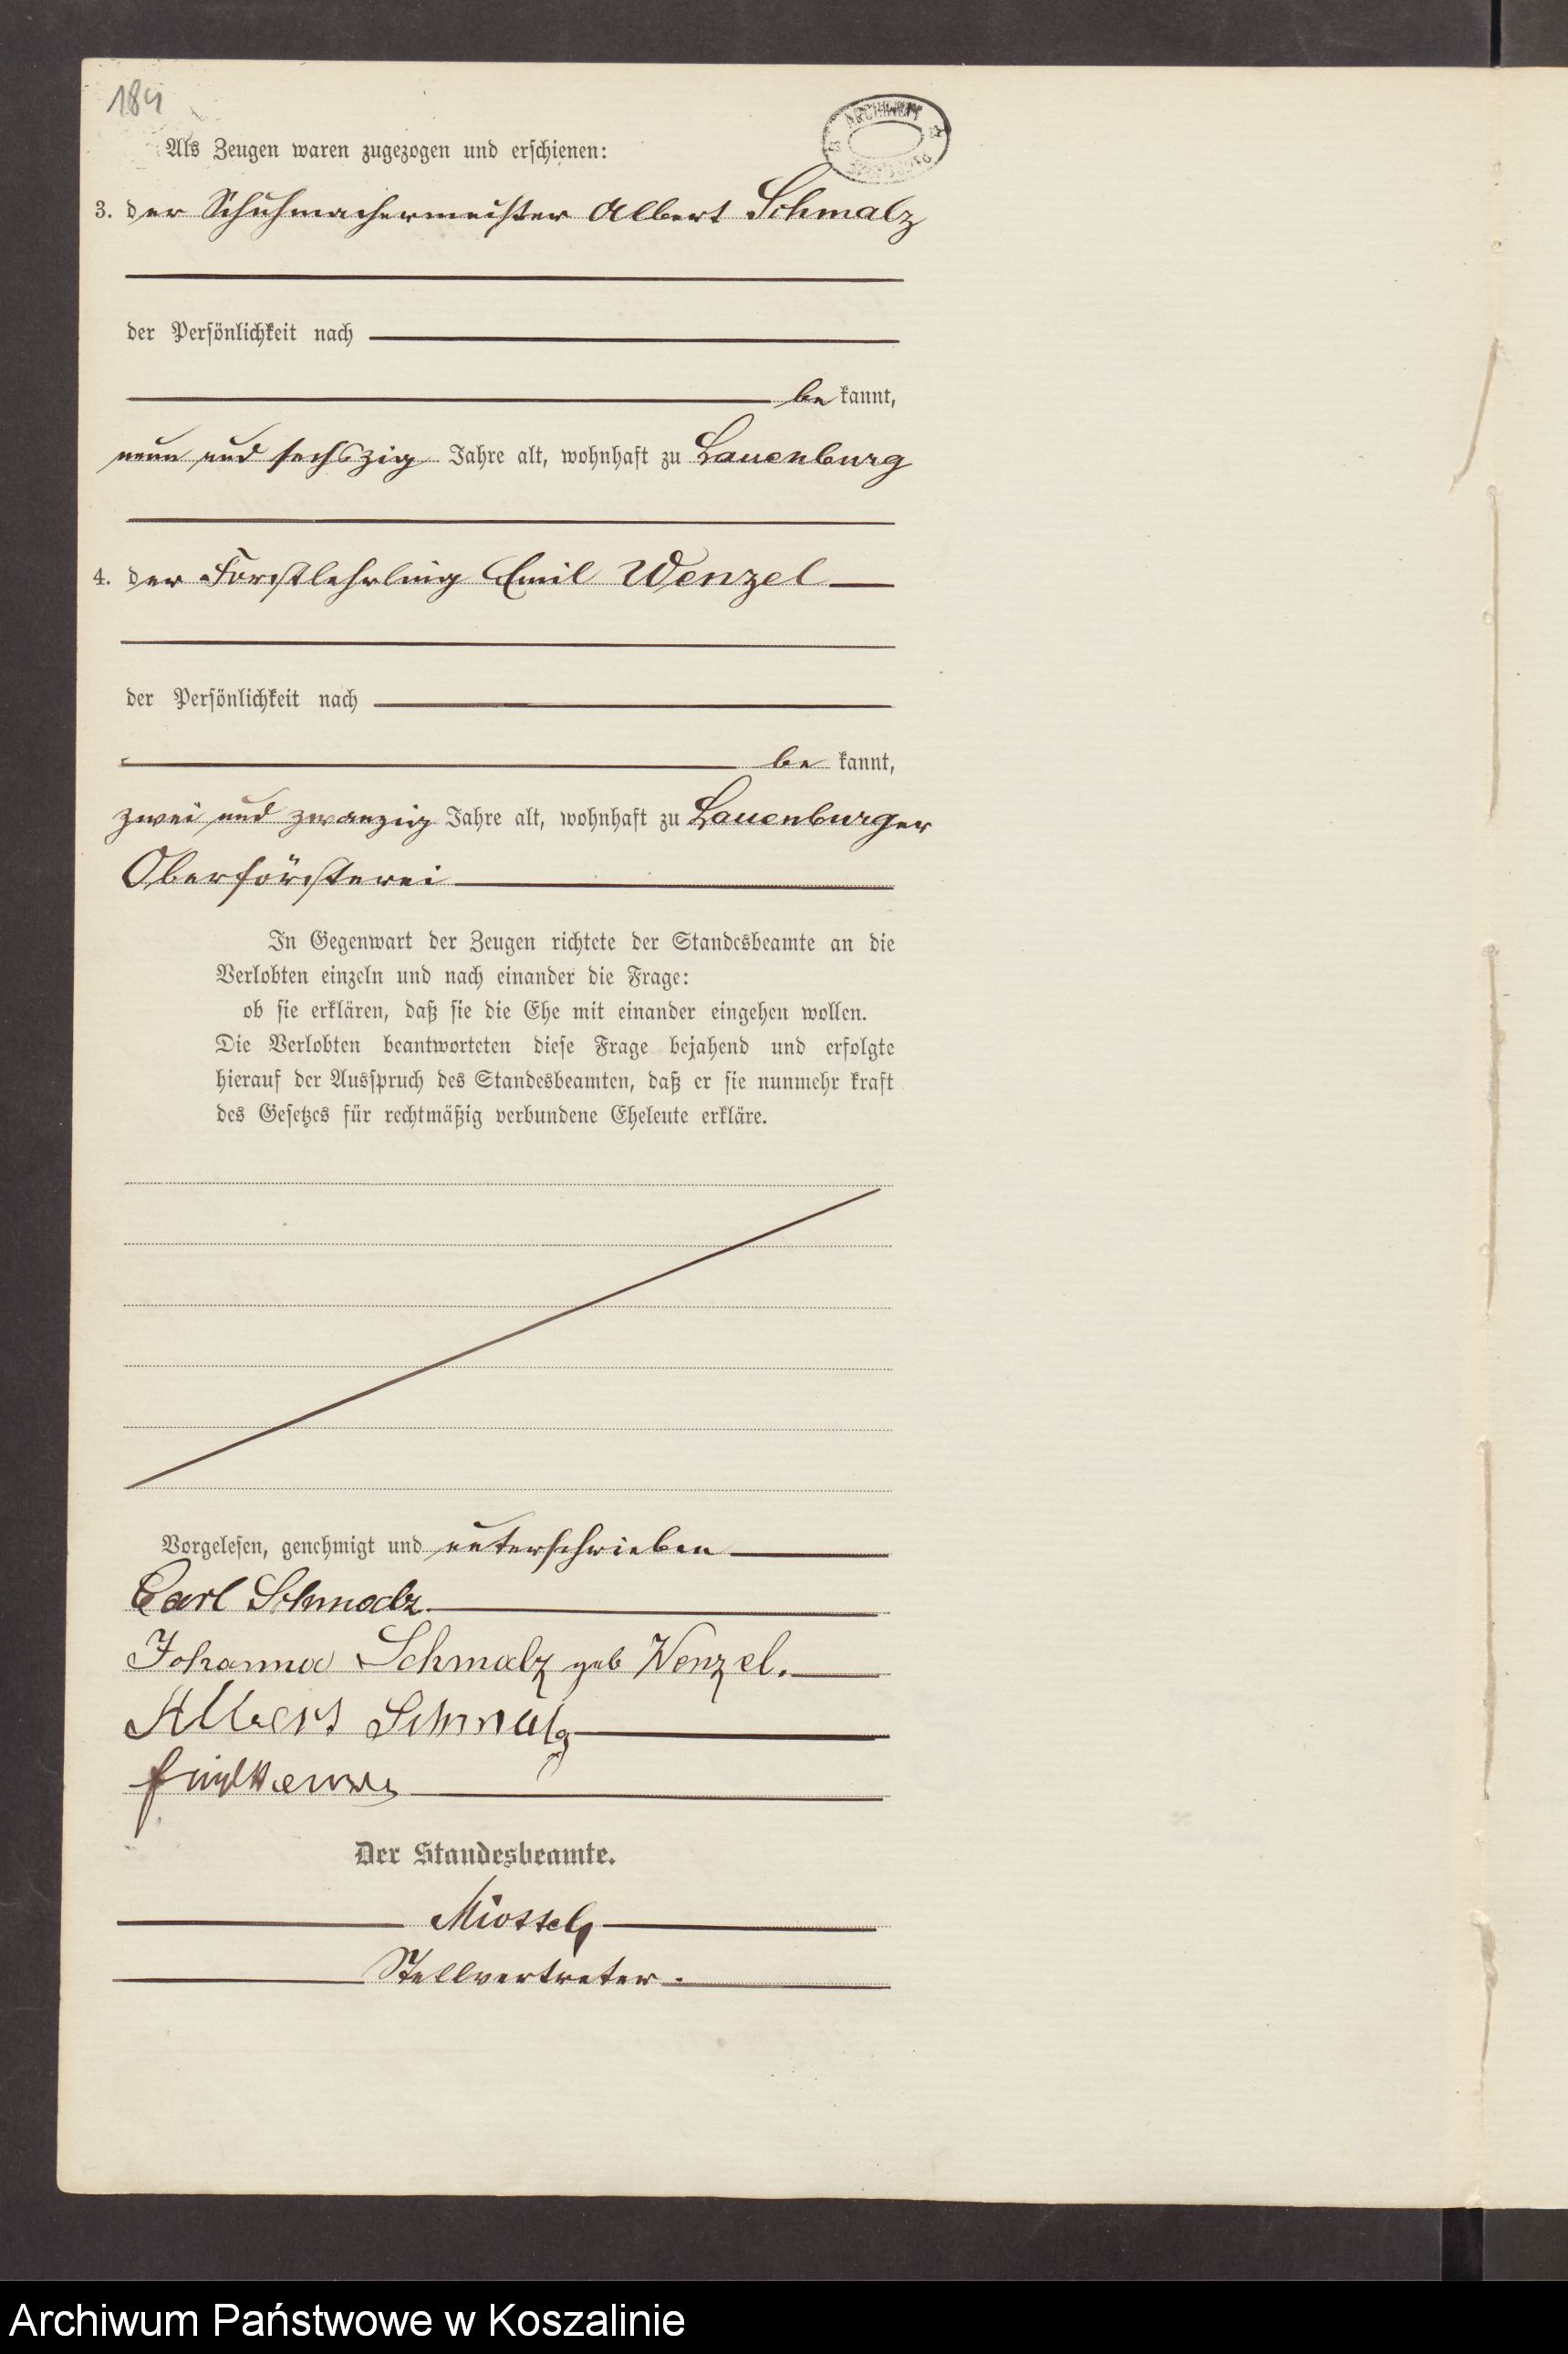 184
ARCHIWUM
Als Zeugen waren zugezogen und erschienen:
3. der Schuhmachermeister Albert Schmalz
der Persönlichkeit nach
be kannt,
neun und sechszig Jahre alt, wohnhaft zu Lauenburg
4. der Forstlehrling Emil Wenzel
der Persönlichkeit nach
be kannt,
zwei und zwanzig Jahre alt, wohnhaft zu Lauenburger
Oberförsterei
In Gegenwart der Zeugen richtete der Standesbeamte an die
Verlobten einzeln und nach einander die Frage:
ob sie erklären, daß sie die Ehe mit einander eingehen wollen.
Die Verlobten beantworteten diese Frage bejahend und erfolgte
hierauf der Ausspruch des Standesbeamten, daß er sie nunmehr kraft
des Gesetzes für rechtmäßig verbundene Eheleute erkläre.
Vorgelesen, genehmigt und unterschrieben
Carl Schmalz
Johanna Schmalz geb Wenzel.
Albert Schmalz
Der Standesbeamte.
Stellvertreter.
Archiwum Państwowe w Koszalinie